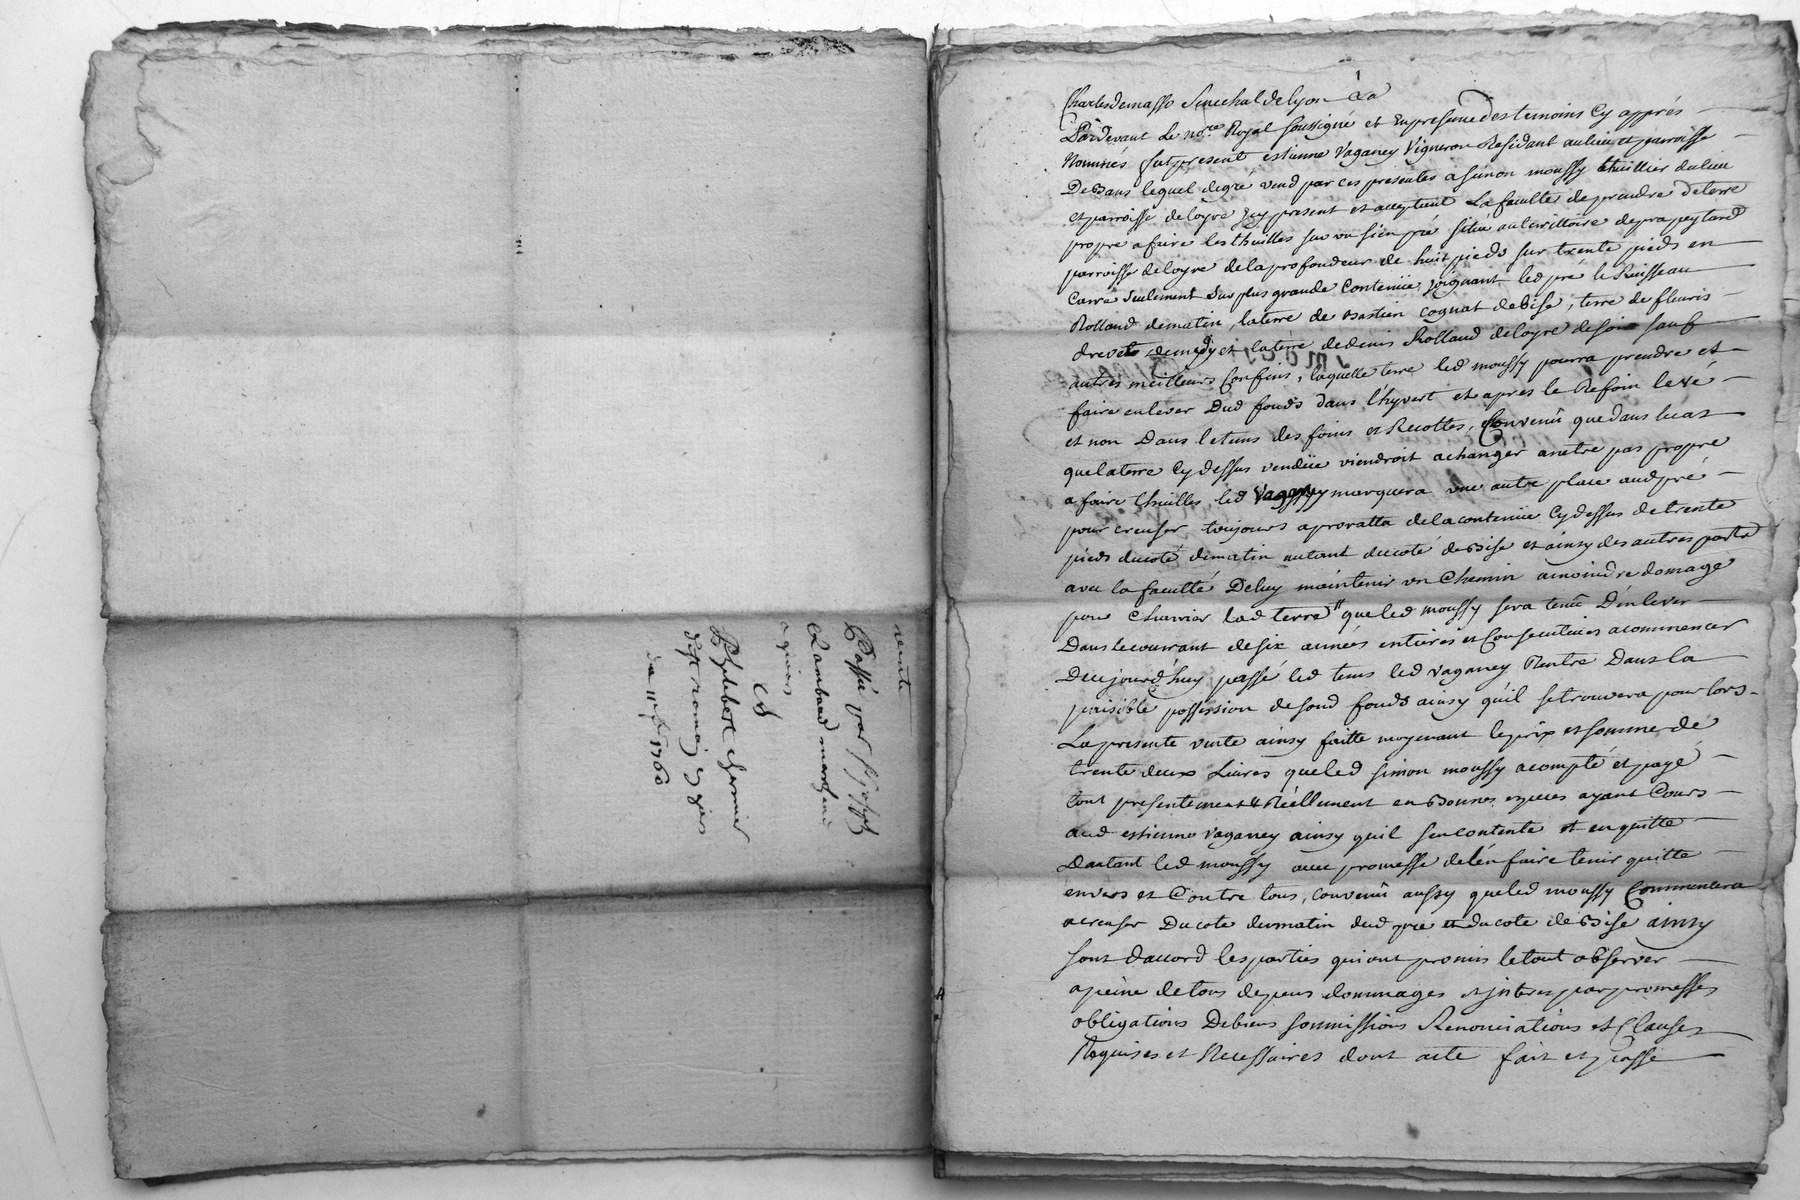 vente
Passé par Sr Joseph
Lambaud marchand
a giers
a
Phylibert charnier
dist romain de giers
du 11 1760
Charles demasso Senechal de lyon
Pardevant Le nore Royal soussigné et En presence des temoins Cy apprés
Nommés fut present estienne Vaganey Vigneron Residant au lieu et parroisse
De Bans lequel degré vend par ces presentes a simon moussy thuillier du lieu
et parroisse de loyre Jcy present et acceptant La faculté de prendre de terre
propre a faire les thuilles sur un sien pré situé au territtoire de prapeytard
parroisse de loyre de la profondeur de huit pieds sur trente pieds en
Carré Seulement Sur plus grande Contenüe, joignant led pré le Ruisseau
Rolland de matin, la terre de Bastien Cognat de Bise, terre de fleuris
drevet demidy et la terre de denis Rolland de loyre de soir sauf
autres meilleurs Confins, laquelle terre led moussy pourra prendre et
faire enlever Dud fonds dans l'hyvert et apres le Refoin levé
et non Dans le tems des foins et Recoltes, Convenû que dans le cas
que la terre Cy dessus vendüe viendroit a changer a netre pas propre
a faire thuilles led Vaganey marquera une autre place aud pré
pour creuser toujours a proratta de la contenüe Cy dessus de trente
pieds du coté de matin autant du coté de Bise et ainsy des autres parts
avec la faculté De luy maintenir un Chemin a moindre domage
pour Charrier lad terre que led moussy sera tenû D'enlever
Dans le courrant de six années entieres et Consecutives a commencer
D'aujourd'huy passé led tems led vaganey Rentre Dans la
paisible possession de soud fonds ainsy qu'il se trouvera pour lors
La presente vente ainsy faitte moyenant le prix et somme de
trente deux Livres que led simon moussy a compté et payé
tout presentement & Réellement en Bonnes especes ayant Cours
aud estienne Vaganey ainsy quil sen contente et en quitte
Dautant led moussy avec promesse de l'en faire tenir quitte
envers et Contre tous, convenû aussy que led moussy Commencera
a creuser Du cote du matin dud pré et du cote de Bise ainsy
sont d'accord les parties qui ont promis le tout observer
a peine de tous depens dommages et jnterets par promesses
obligations De biens soumissions Renonciations et Clauses
Requises et Necessaires dont acte fait et passé